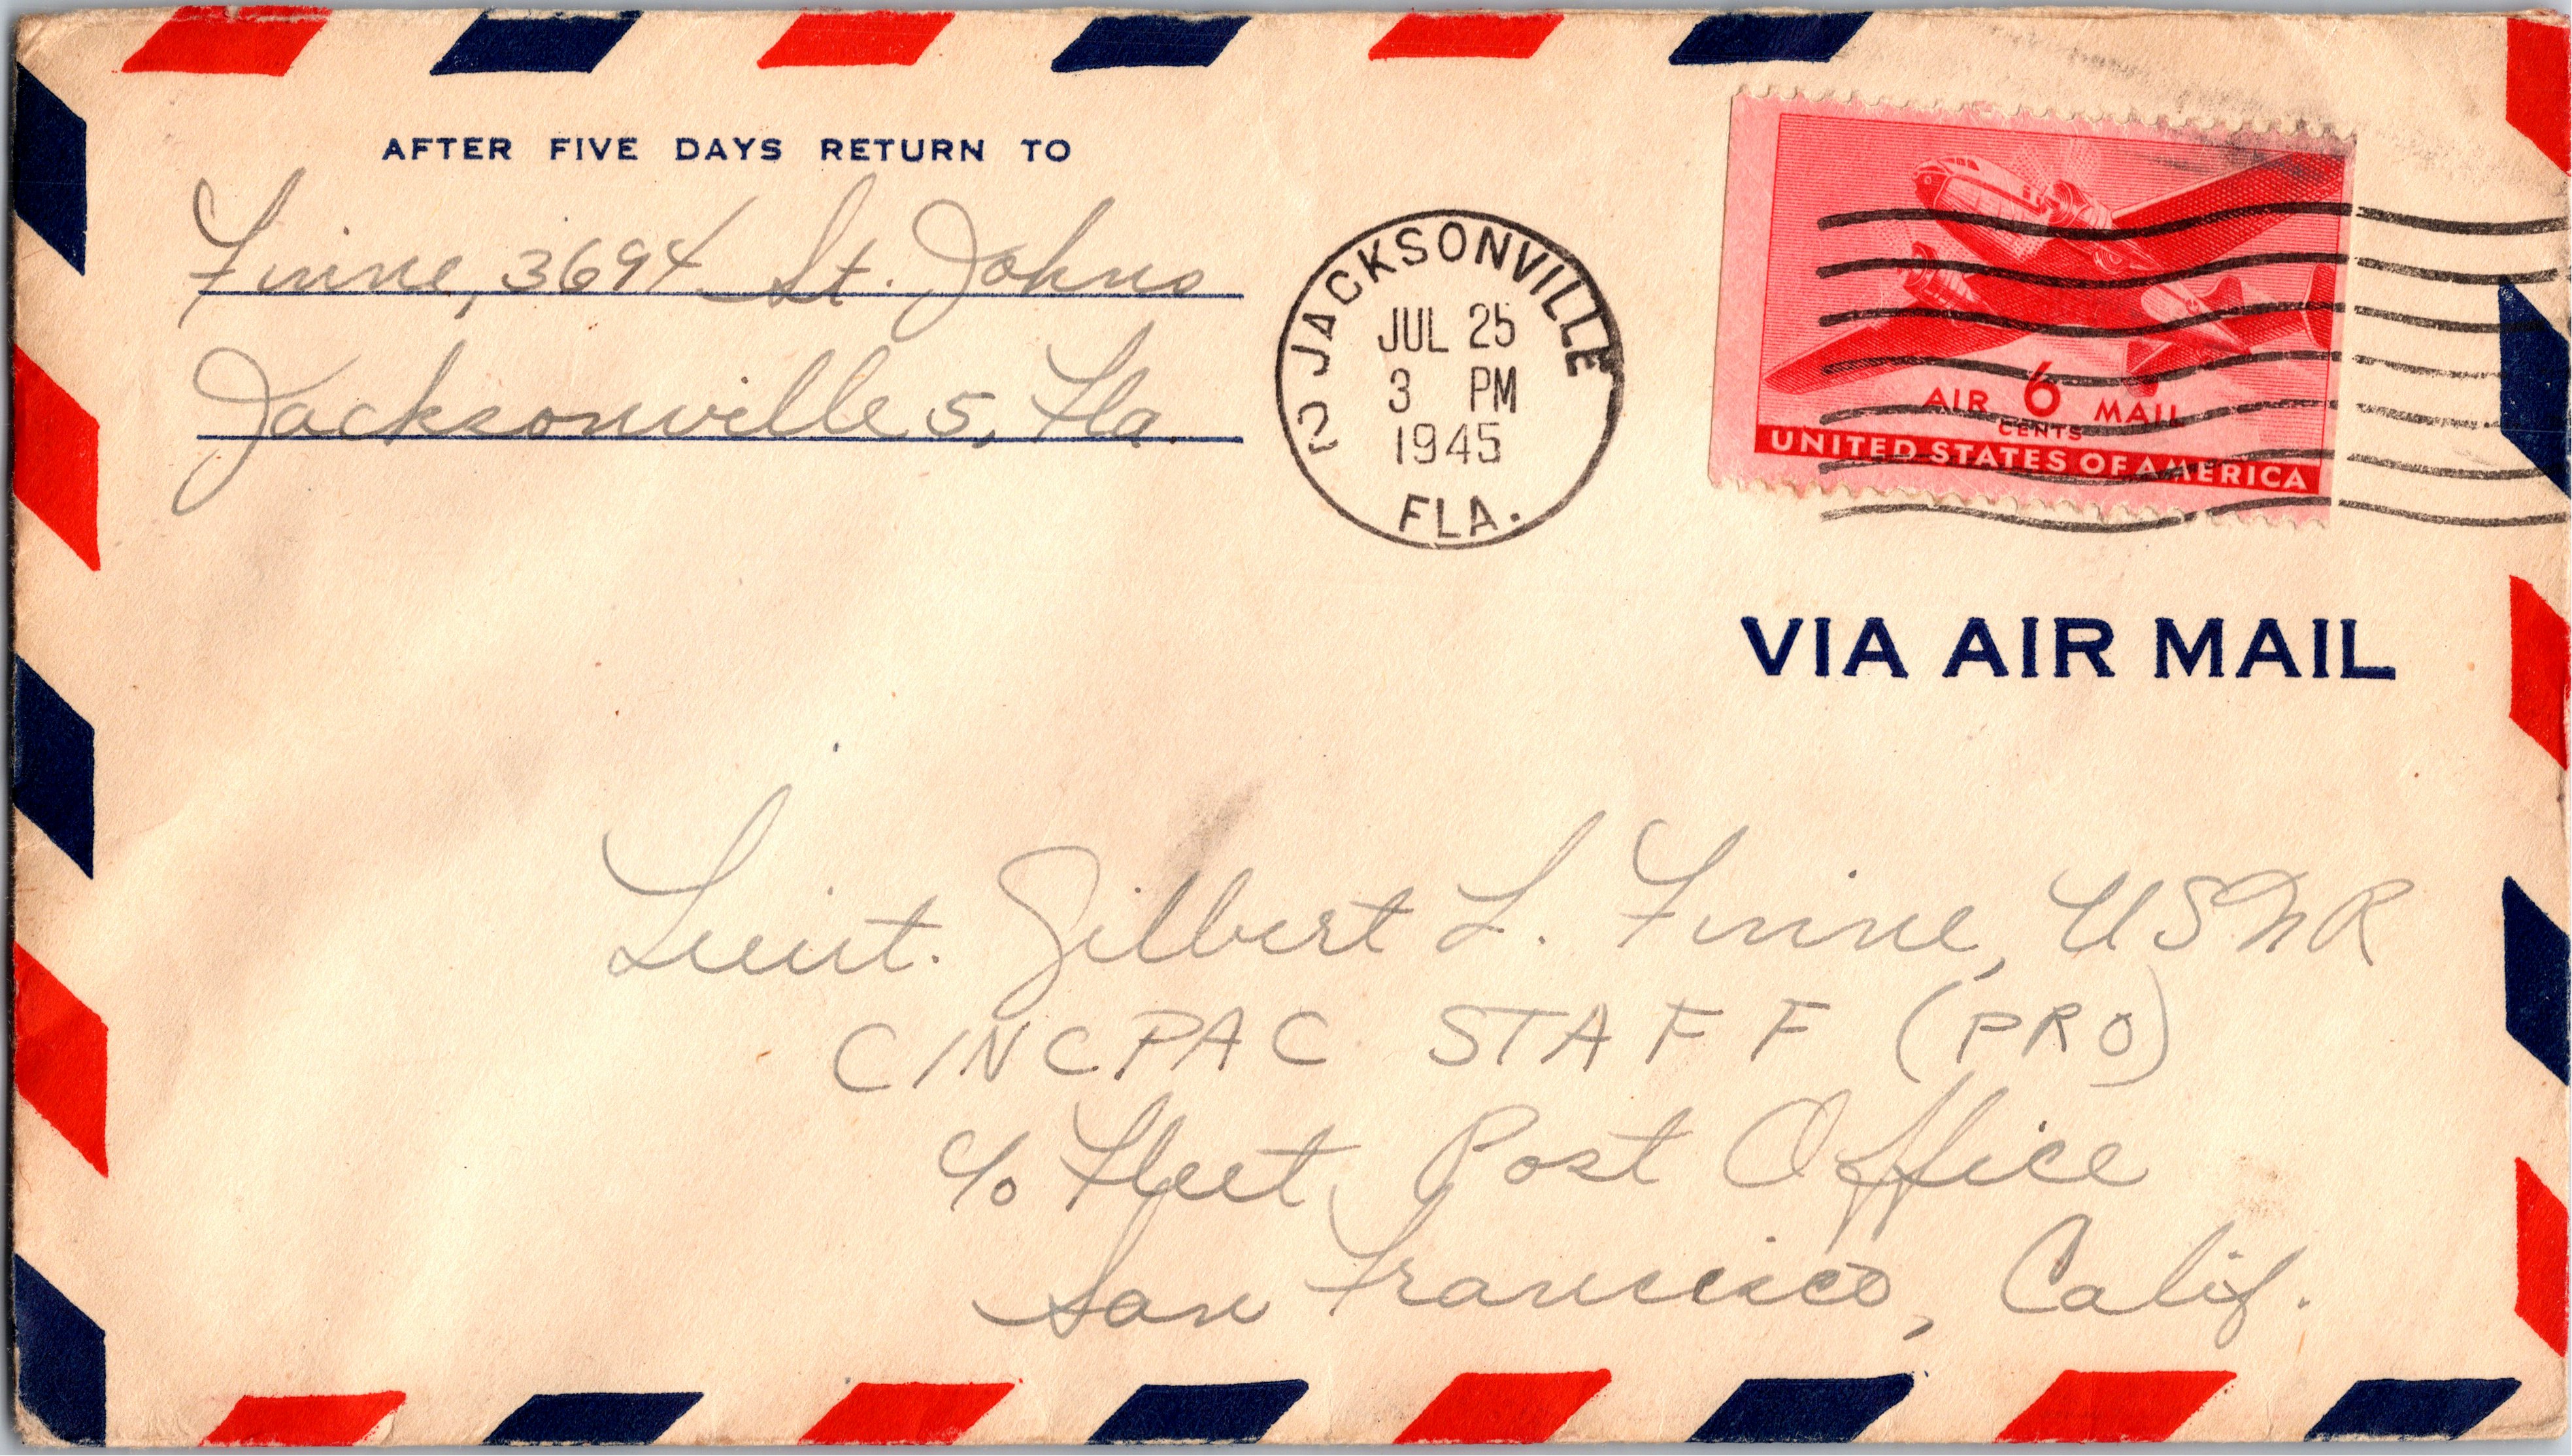 AFTER FIVE DAYS RETURN TO
Finne, 3694 St. Johns
Jacksonville 5, Fla.
2 JACKSONVILLE
JUL 25
3 PM
1945
FLA.
AIR 6 MAIL
CENTS
UNITED STATES OF AMERICA
VIA AIR MAIL
Lieut. Gilbert L. Finne, USNR
CINCPAC STAFF (PRO)
c/o Fleet Post Office
San Francisco, Calif.